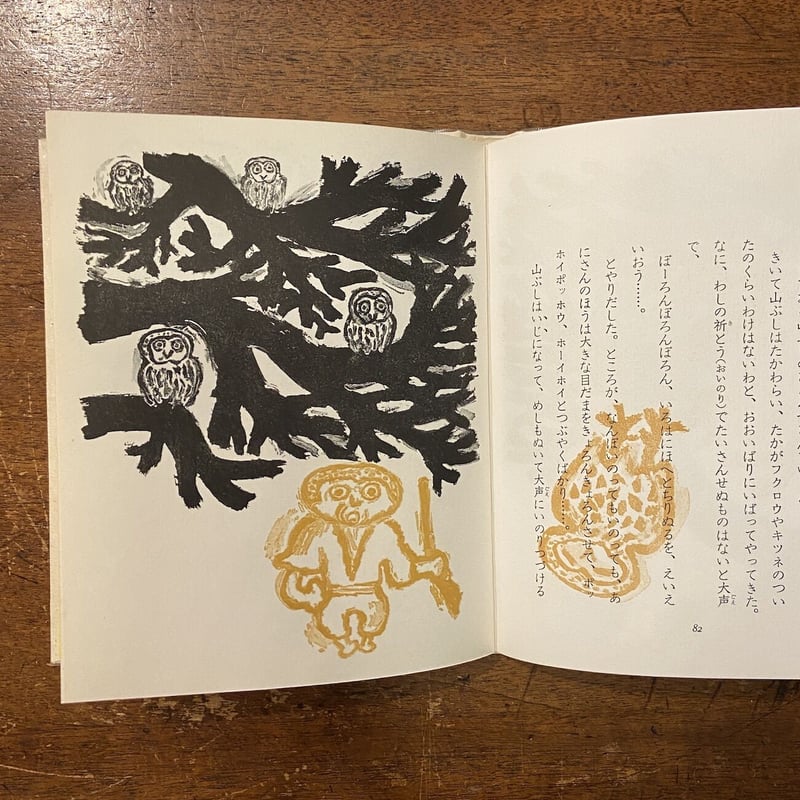 きいて山ぶしはたかわらい、たかがフクロウやキツネのつい
たのくらいわけはないわと、おおいばりにいばってやってきた。
なに、わしの祈とう(おいのり)でたいさんせぬものはないと大声
で、
ぼーろんぼろんぼろん、いろはにほへとちりぬるを、えいえ
いおう……。
とやりだした。ところが、なんぼいのってもいのっても、あ
にさんのほうは大きな目だまをきょろんきょろんさせて、ポッ
ホイポッ ホウ、ホーイホイとつぶやくばかり……。
山ぶしはいじになって、めしもぬいて大声にいのりつづける
82